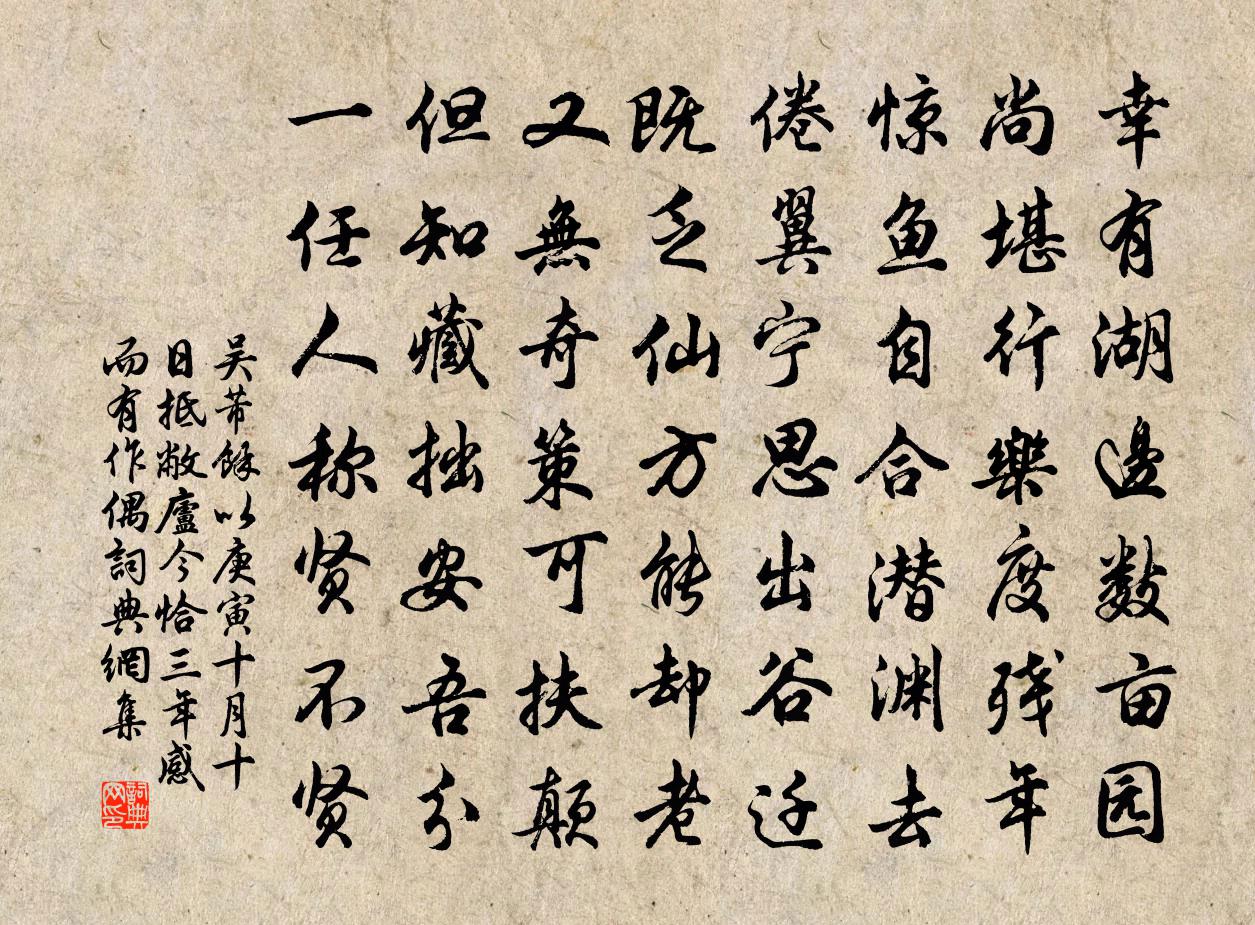 幸有湖邊数亩园
尚堪行樂度残年
惊鱼自合潜渊去
倦翼宁思出谷迁
既乏仙方能却老
又無奇策可扶颠
但知藏拙安吾分
一任人称贤不贤
吴芾馀以庚寅十月十
日抵敝廬今恰三年感
而有作偶詞典網集
詞典
网印